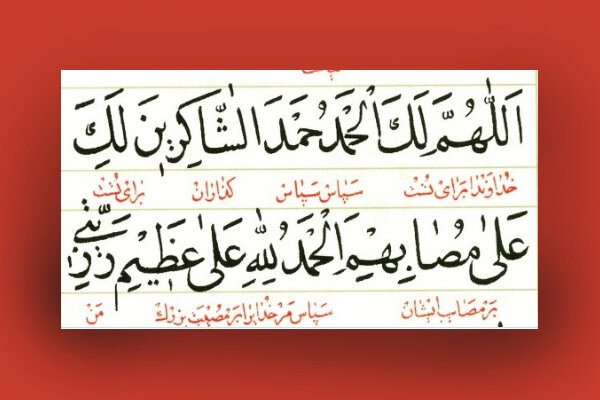 اَللّٰهُمَّ لَكَ الْحَمْدُ حَمْدَ الشّٰاكِرينَ لَكَ
خداوندا برای تست سپاس سپاس گذاران برای تست
عَلىٰ مُصٰابِهِمْ اَلْحَمْدُ لِلّٰهِ عَلىٰ عَظيمِ رَزِيَّتي
بر مصائب ایشان سپاس مر خدا را بر مصیبت بزرگ من